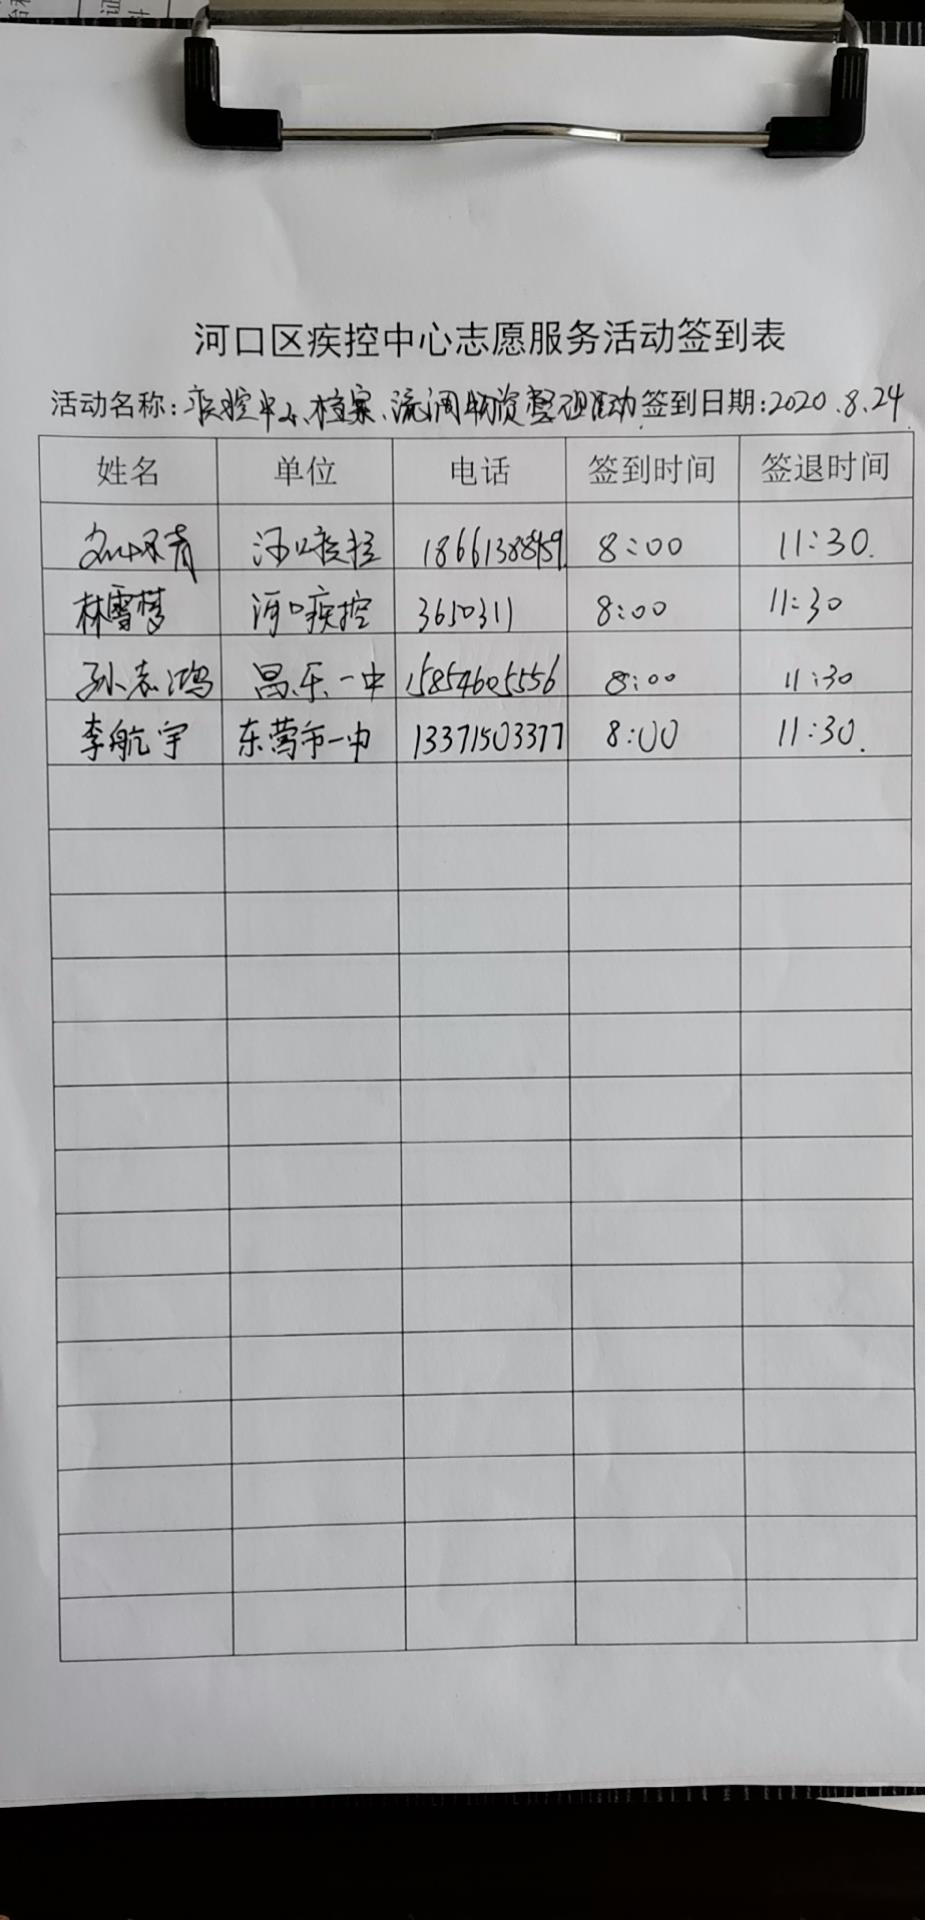 河口区疾控中心志愿服务活动签到表
活动名称:疾控中心档案、流调物资整理活动 签到日期:2020.8.24
姓名 单位 电话 签到时间 签退时间
河口疾控 8:00 11:30.
林雪梦 河口疾控 3650311 8:00 11:30
孙志鸿 昌乐一中 15854605556 8:00 11:30
李航宇 东营市一中 13371503377 8:00 11:30.